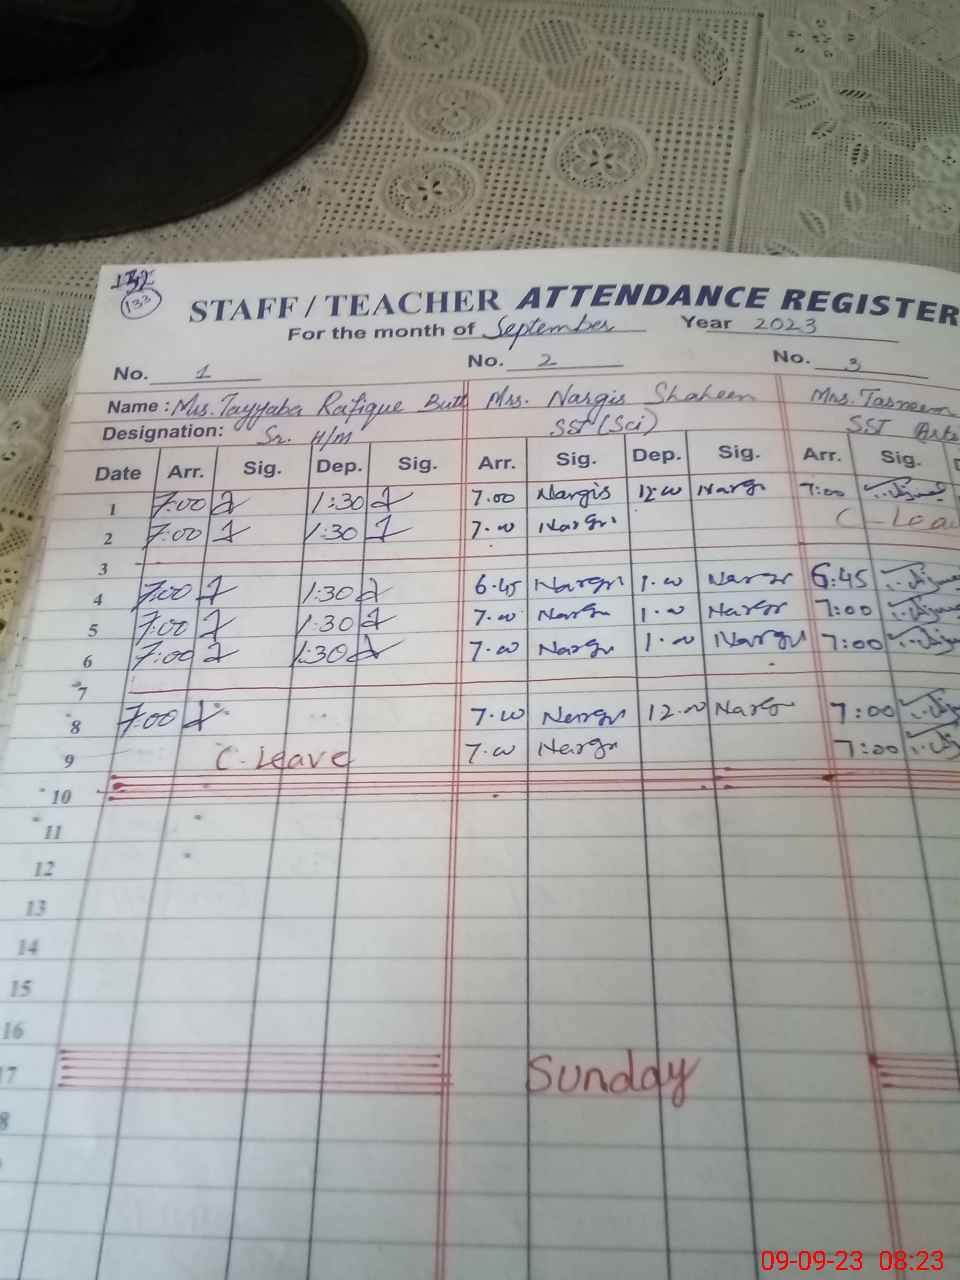 132
133
STAFF / TEACHER ATTENDANCE REGISTER
For the month of September Year 2023
No. 1 No. 2 No. 3
Name : Mrs. Tayyaba Rafique Butt Mrs. Nargis Shaheen Mrs. Tasneem
Designation: Sr. H/M SST (Sci) SST Arts
Date Arr. Sig. Dep. Sig. Arr. Sig. Dep. Sig. Arr. Sig.
1 7:00 1:30 7.00 Nargis 12.00 Nargis 7:00
2 7:00 1:30 7.00 Nargis C-Lea
3
4 7:00 1:30 6.45 Nargis 1.00 Nargis 6:45
5 7:00 1:30 7.00 Nargis 1.00 Nargis 7:00
6 7:00 1:30 7.00 Nargis 1.00 Nargis 7:00
7
8 7:00 7.00 Nargis 12.00 Nargis 7:00
9 C. Leave 7.00 Nargis 7:00
10
11
12
13
14
15
16
17 Sunday
8
09-09-23 08:23